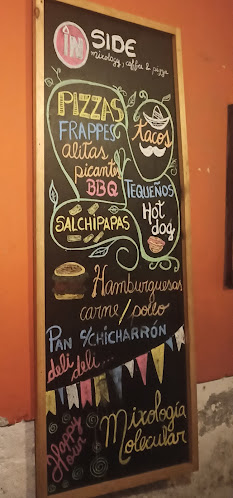 iN SIDE
mixology, coffee & pizza
PIZZAS
FRAPPES
tacos
alitas
picantes
BBQ
TEQUEÑOS
SALCHIPAPAS
Hot
dog
Hamburguesas
carne/pollo
PAN C/CHICHARRÓN
deli deli...
Happy
hour
Mixología
Molecular